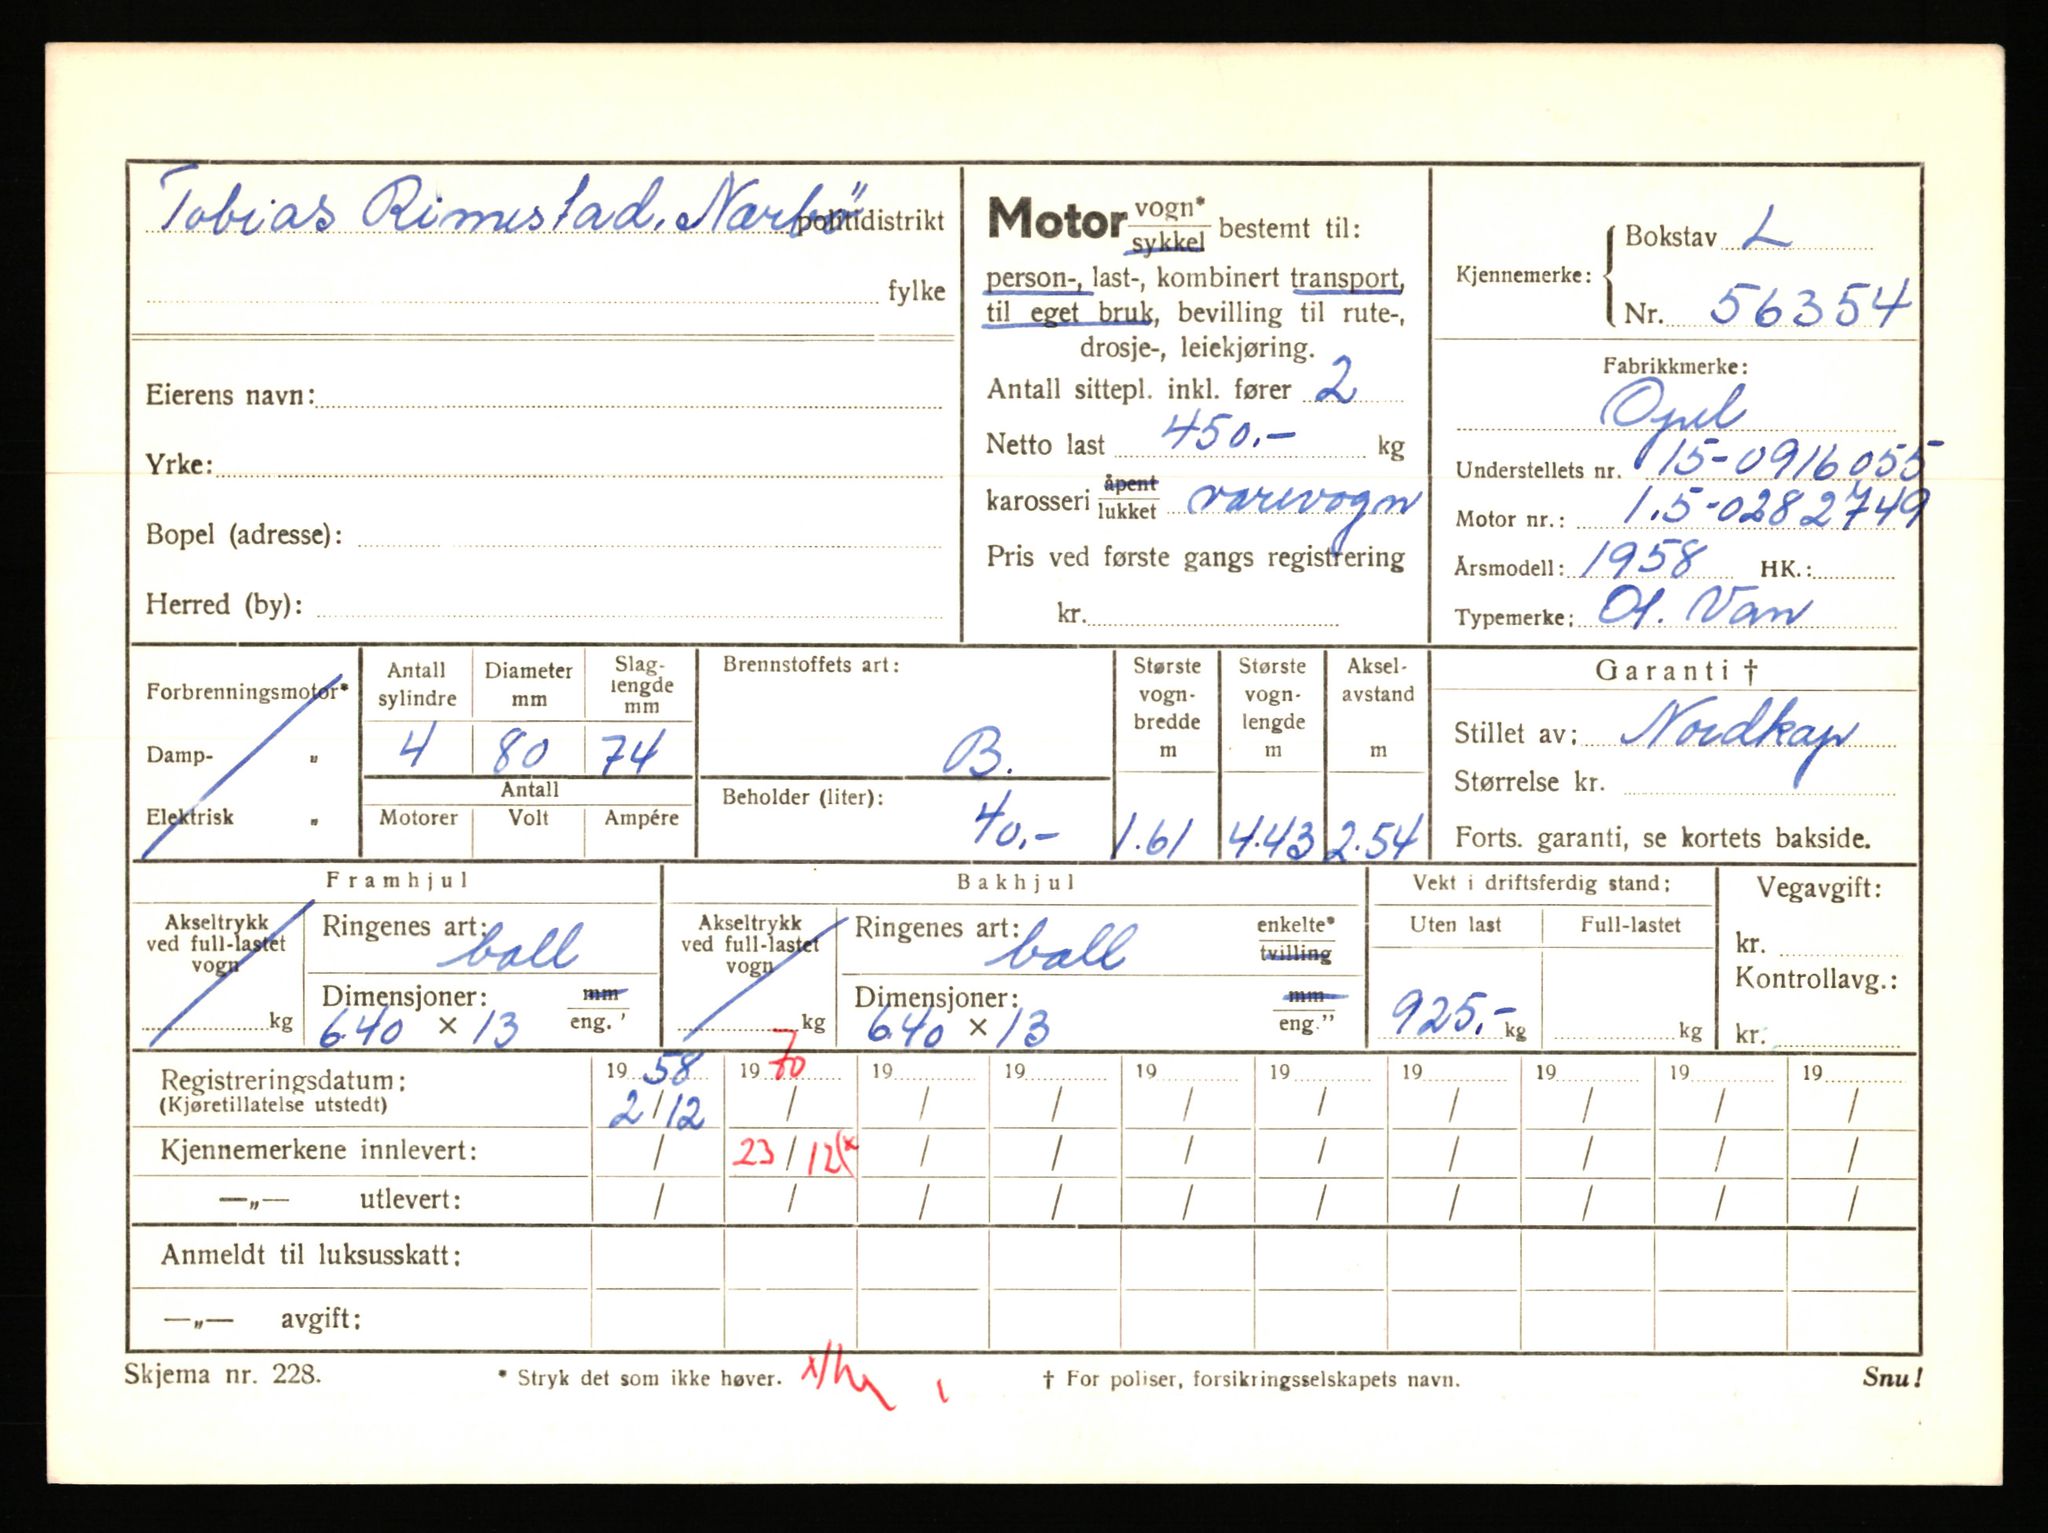 Tobias Rimestad, Nærbö politidistrikt
fylke
Eierens navn:
Yrke:
Bopel (adresse):
Herred (by):
Motor vogn* sykkel bestemt til:
person-, last-, kombinert transport,
til eget bruk, bevilling til rute-,
drosje-, leiekjøring.
Antall sittepl. inkl. fører 2
Netto last 450.- kg
karosseri åpent lukket varevogn
Pris ved første gangs registrering
kr.
Kjennemerke: Bokstav L
Nr. 56354
Fabrikkmerke:
Opel
Understellets nr. 15-0916055
Motor nr.: 1.5-0282749
Årsmodell: 1958 HK.:
Typemerke: Ol. Van
Forbrenningsmotor*
Damp- „
Elektrisk „
Antall sylindre Diameter mm Slag-lengde mm
4 80 74
Antall
Motorer Volt Ampére
Brennstoffets art:
B.
Beholder (liter):
40.-
Største vogn-bredde m
1.61
Største vogn-lengde m
4.43
Aksel-avstand m
2.54
Garanti †
Stillet av: Nordkap
Størrelse kr.
Forts. garanti, se kortets bakside.
Framhjul
Akseltrykk ved full-lastet vogn
kg
Ringenes art: ball
Dimensjoner: mm eng. "
640 × 13
Bakhjul
Akseltrykk ved full-lastet vogn
kg
Ringenes art: ball enkelte* tvilling
Dimensjoner: mm eng."
640 × 13
Vekt i driftsferdig stand:
Uten last Full-lastet
925.- kg kg
Vegavgift:
kr.
Kontrollavg.:
kr.
Registreringsdatum: 19 58 19 70 19 19 19 19 19 19 19 19
(Kjøretillatelse utstedt) 2/12 / / / / / / / / /
Kjennemerkene innlevert: / 23/12(x / / / / / / / /
—„— utlevert: / / / / / / / / / /
Anmeldt til luksusskatt:
—„— avgift:
Skjema nr. 228. * Stryk det som ikke høver. † For poliser, forsikringsselskapets navn. Snu!